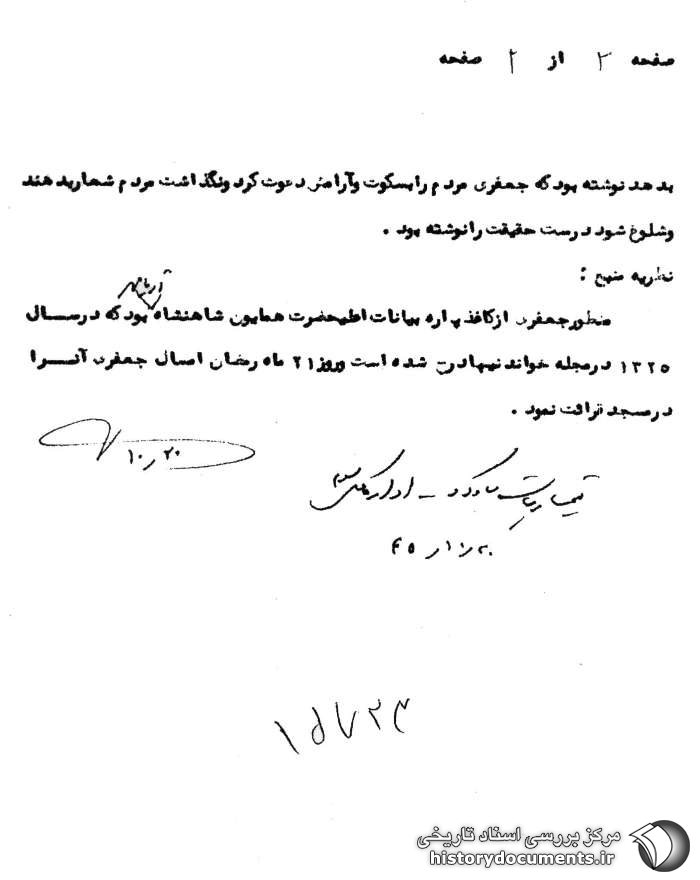 صفحه ۲ از ۲ صفحه
بدهد نوشته بود که جعفری مردم را بسکوت و آرامش دعوت کرد ونگذاشت مردم شعار بدهند
وشلوغ شود درست حقیقت را نوشته بود .
نظریه منبع :
آریامهر
منظور جعفری از کاغذ پاره بیانات اعلیحضرت همایون شاهنشاه بود که در سال
۱۳۲۵ در مجله خواندنیها درج شده است وروز ۲۱ ماه رمضان امسال جعفری آنرا
در مسجد قرائت نمود .
۱۰٫۲۰
اداره کل سوم
۴۵
مرکز بررسی اسناد تاریخی
historydocuments.ir